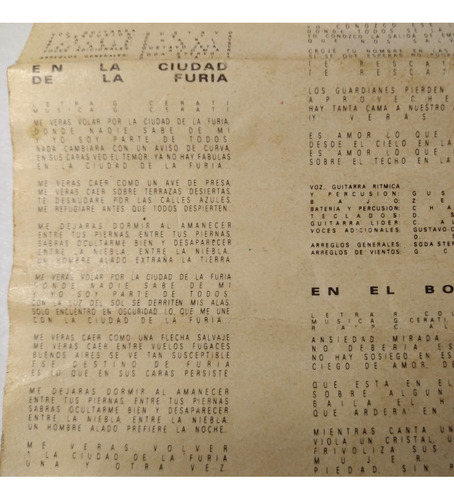 EN LA CIUDAD
DE LA FURIA
LETRA G. CERATI
MUSICA G. CERATI
ME VERAS VOLAR POR LA CIUDAD DE LA FURIA,
DONDE NADIE SABE DE MI
Y YO SOY PARTE DE TODOS
NADA CAMBIARA CON UN AVISO DE CURVA,
EN SUS CARAS VEO EL TEMOR, YA NO HAY FABULAS
EN LA CIUDAD DE LA FURIA.
ME VERAS CAER COMO UN AVE DE PRESA,
ME VERAS CAER SOBRE TERRAZAS DESIERTAS,
TE DESNUDARE POR LAS CALLES AZULES,
ME REFUGIARE ANTES QUE TODOS DESPIERTEN.
ME DEJARAS DORMIR AL AMANECER
ENTRE TUS PIERNAS, ENTRE TUS PIERNAS,
SABRAS OCULTARME BIEN Y DESAPARECER
ENTRE LA NIEBLA, ENTRE LA NIEBLA,
UN HOMBRE ALADO EXTRAÑA LA TIERRA.
ME VERAS VOLAR POR LA CIUDAD DE LA FURIA
DONDE NADIE SABE DE MI
Y YO SOY PARTE DE TODOS
CON LA LUZ DEL SOL SE DERRITEN MIS ALAS,
SOLO ENCUENTRO EN OSCURIDAD LO QUE ME UNE
CON LA CIUDAD DE LA FURIA.
ME VERAS CAER COMO UNA FLECHA SALVAJE
ME VERAS CAER ENTRE VUELOS FUGACES
BUENOS AIRES SE VE TAN SUSCEPTIBLE
ESE DESTINO DE FURIA
ES LO QUE EN SUS CARAS PERSISTE
ME DEJARAS DORMIR AL AMANECER
ENTRE TUS PIERNAS ENTRE TUS PIERNAS
SABRAS OCULTARME BIEN Y DESAPARECER
ENTRE LA NIEBLA ENTRE LA NIEBLA.
UN HOMBRE ALADO PREFIERE LA NOCHE.
ME VERAS VOLVER
A LA CIUDAD DE LA FURIA
UNA Y OTRA VEZ
CONOZCO ESE
DONDE TODOS SE
YO CONOZCO LA SALIDA DE EM
QUE NO
CRUJE TU NOMBRE EN LAS
TE RESCAT
TE RESCA
LOS GUARDIANES PIERDEN
APROVECHE
HAY TANTA CAMA A NUESTRO
¡Y VERAS
ES AMOR LO QUE
DESDE EL CIELO EN LA
ES AMOR LO QUE
SOBRE EL TECHO EN LA
VOZ, GUITARRA RITMICA
Y PERCUSION: GUS
BAJO: ZE
BATERIA Y PERCUSION: CHA
TECLADOS: D
GUITARRA LIDER: C
VOCES ADICIONALES: GUSTAVO
ARREGLOS GENERALES: SODA STE
ARREGLOS DE VIENTOS: G C
EN EL BO
LETRA R COL
MUSICA G CERATI
ANSIEDAD MIRADA
NO DEBERIA ES
NO HAY SOSIEGO EN ES
CIEGO DE AMOR DE
QUE ESTA EN EL
SOBRE ALGUN
BAILA EL H
QUE ARDERA EN
MIENTRAS CANTA UN
VIOLA UN CRISTAL, U
FRIVOLIZA SUS
MUJER
PIEDAD, SIN P